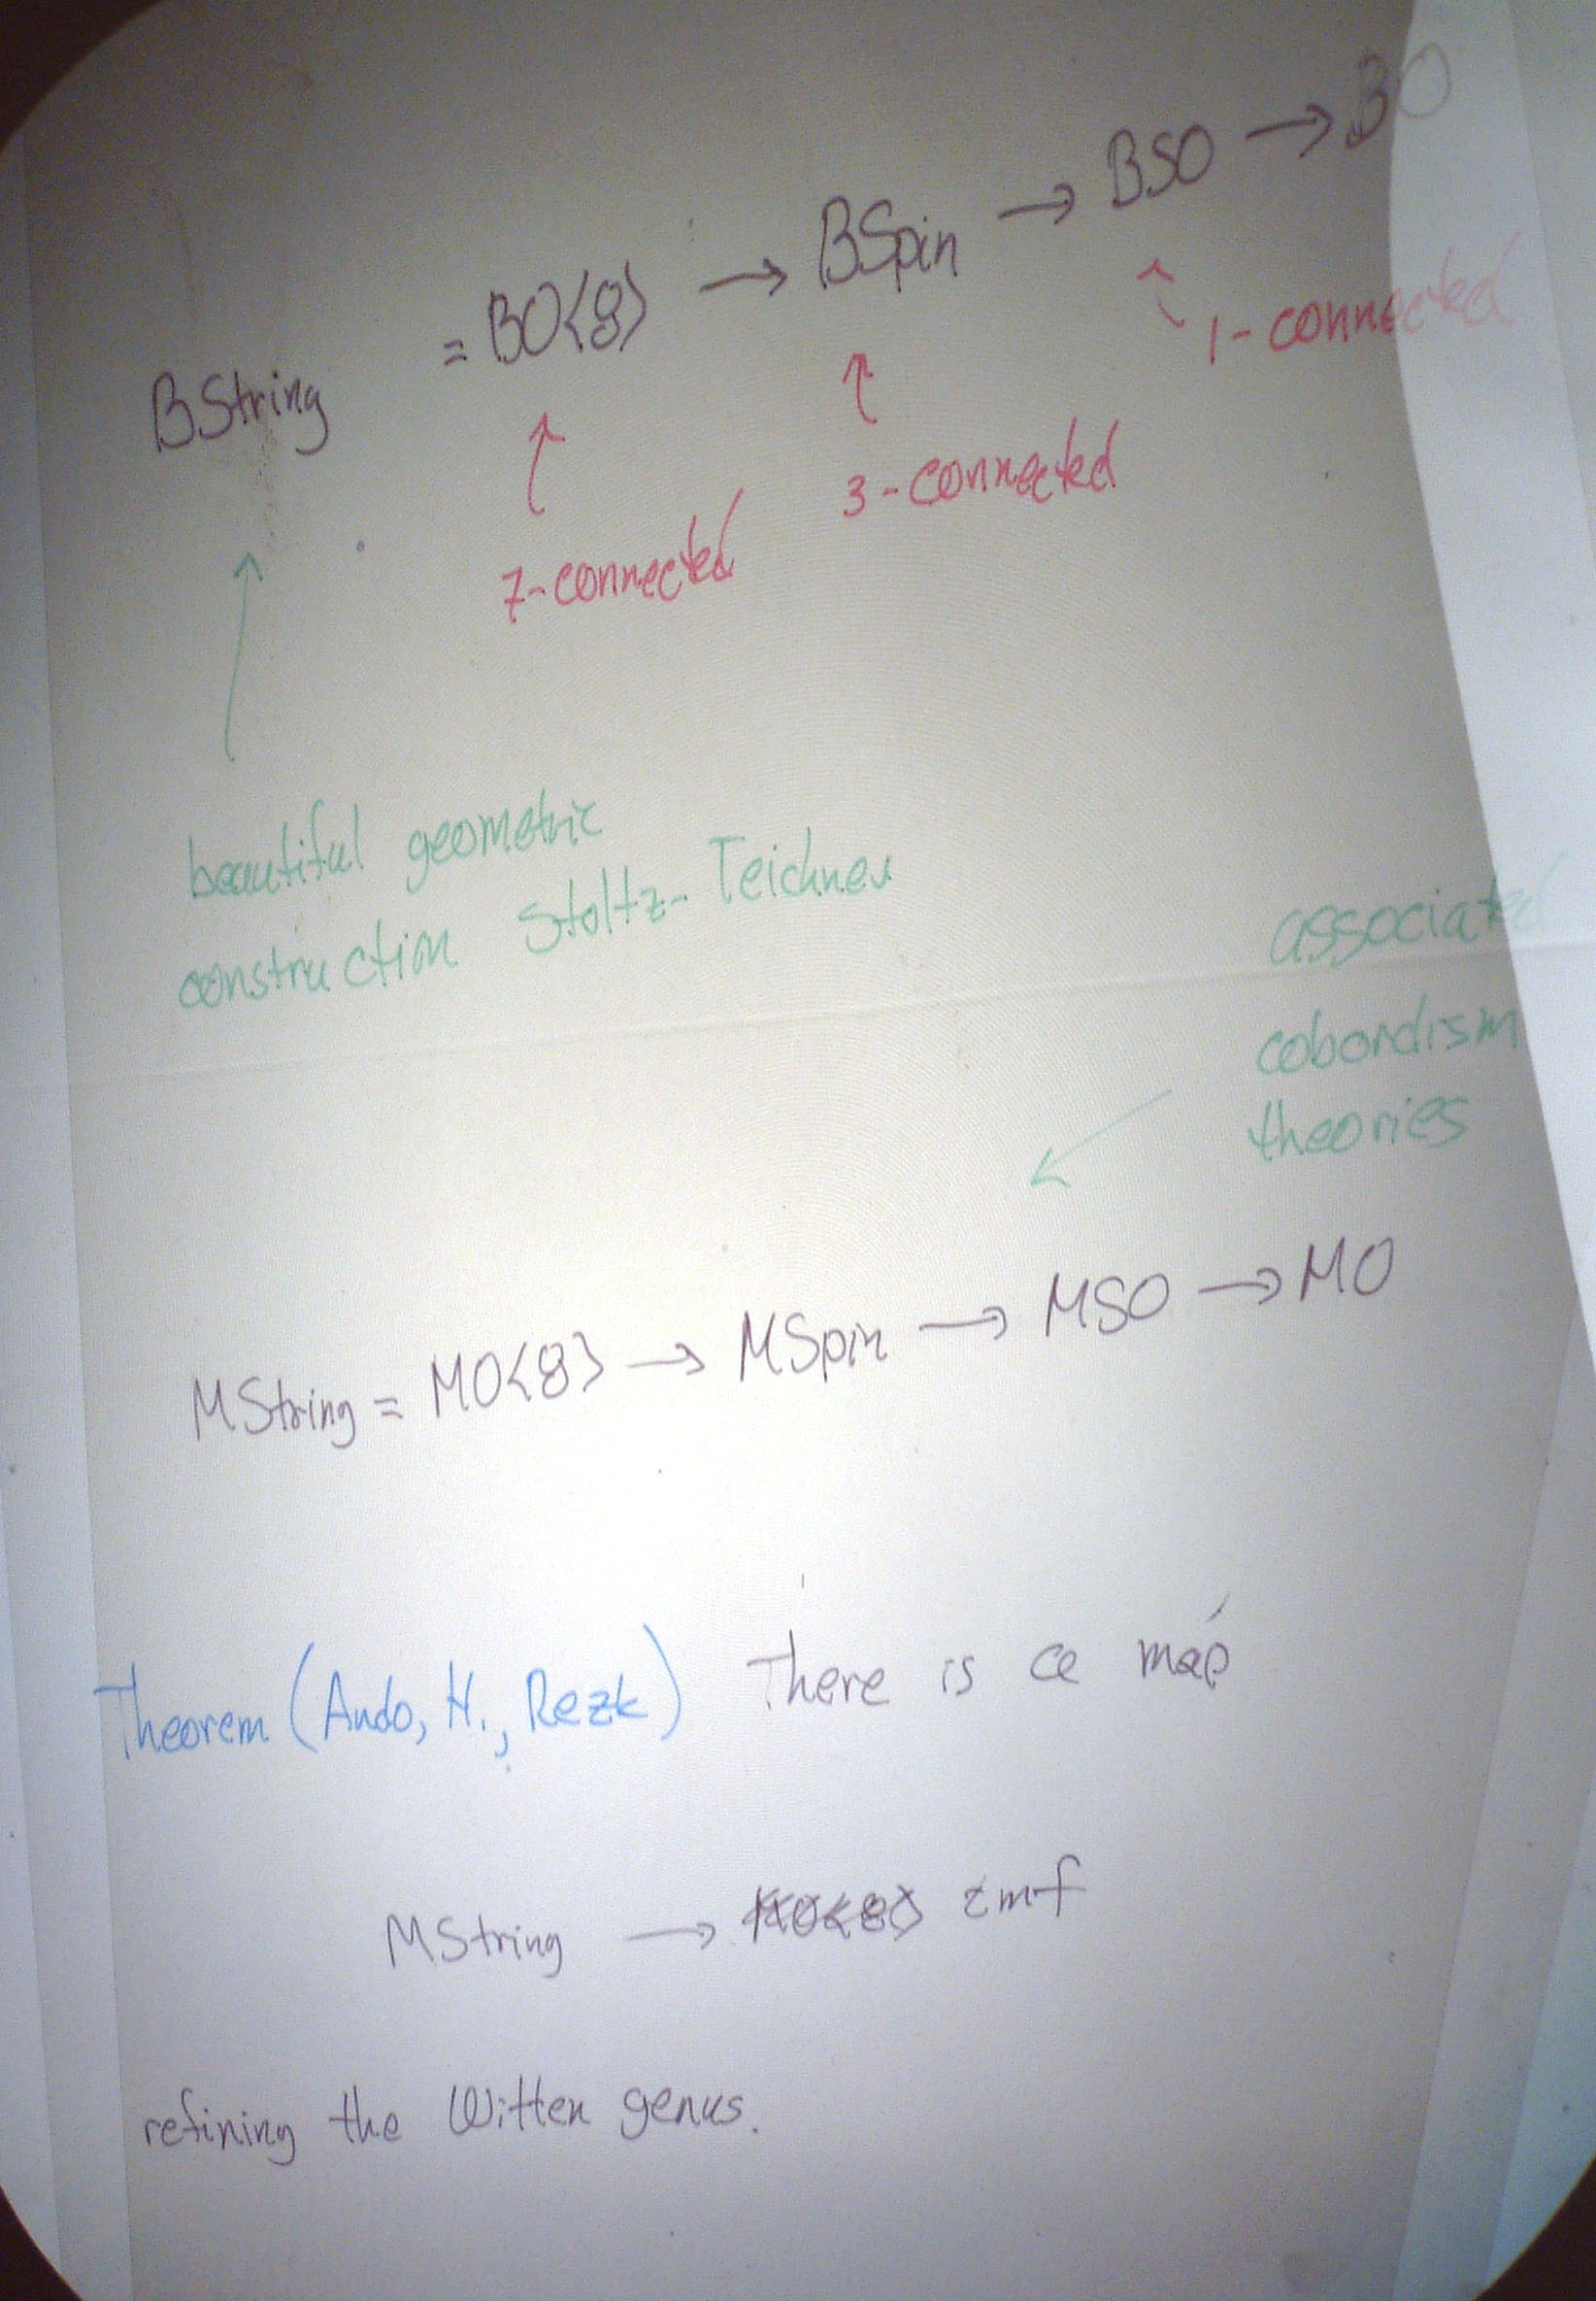 BString = BO<8> → BSpin → BSO → BO
7-connected
3-connected
1-connected
beautiful geometric
construction Stoltz-Teichner
associated
cobordism
theories
MString = MO<8> → MSpin → MSO → MO
Theorem (Ando, H., Rezk) There is a map
MString → tmf
refining the Witten genus.